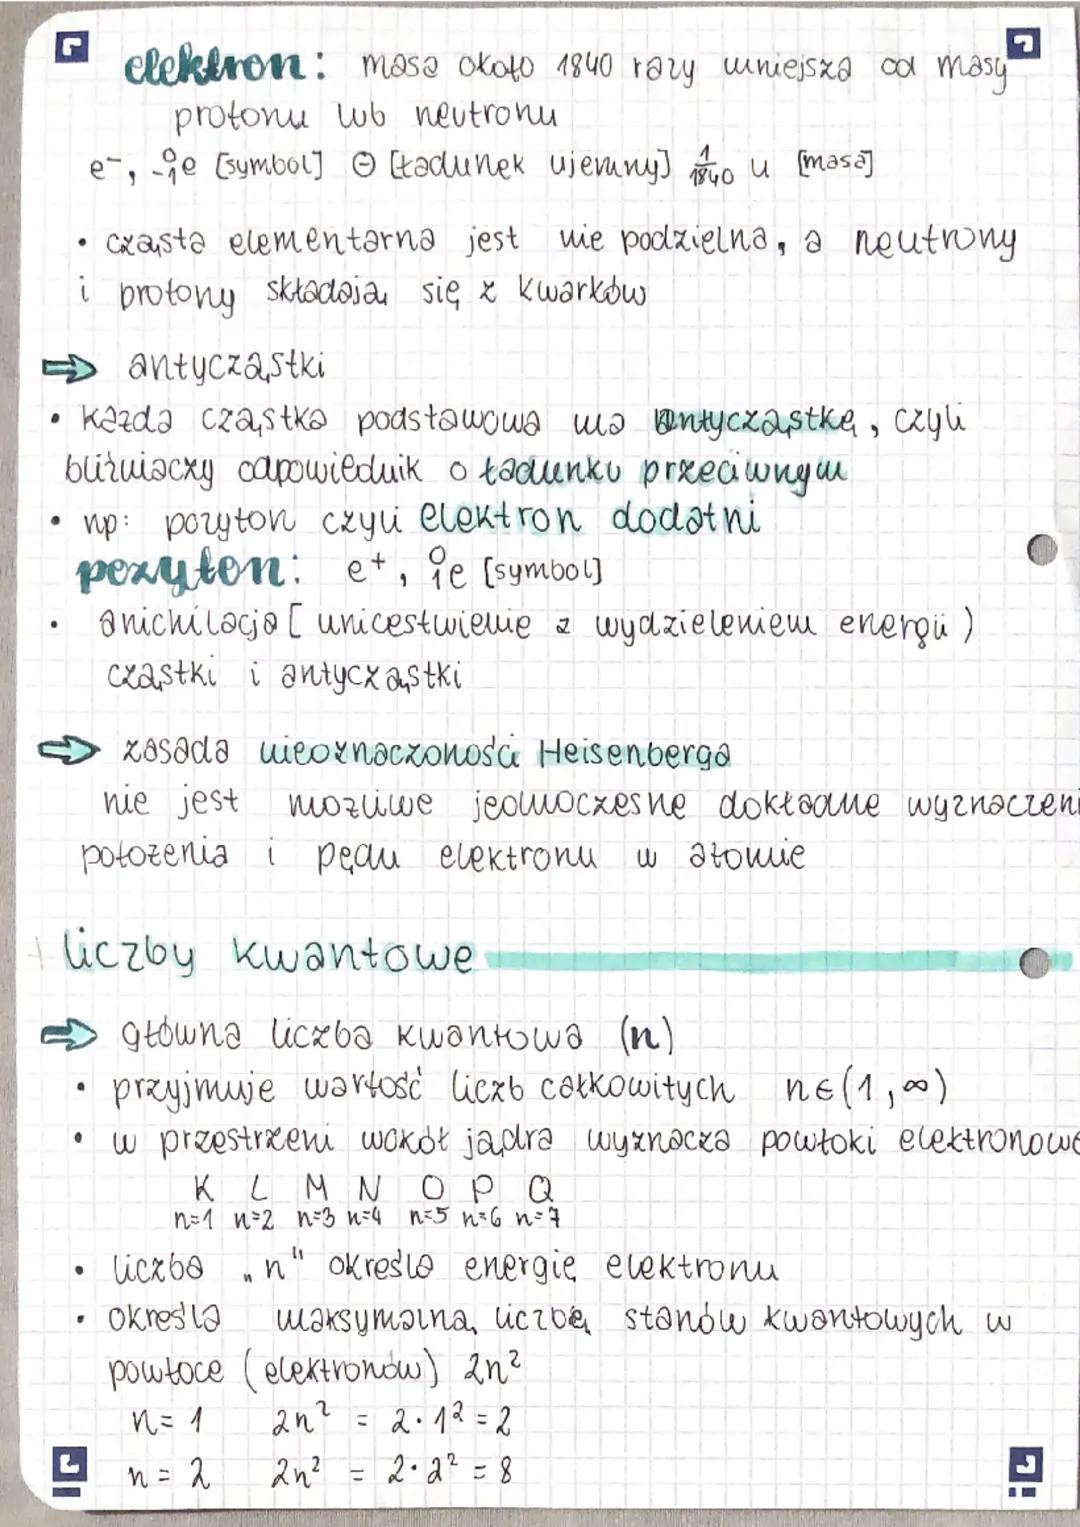 elektron: masa około 1840 razy mniejsza od masy
protonu lub neutronu
e⁻, ⁰₋₁e [symbol] ⊖ [ładunek ujemny] 1/1840 u [masa]
• cząsta elementarna jest nie podzielna, a neutrony
i protony składają się z kwarków
⇒ antycząstki
• każda cząstka podstawowa ma antycząstkę, czyli
bliźniaczy odpowiednik o ładunku przeciwnym
• np: pozyton czyli elektron dodatni
pozyton: e⁺, ⁰₁e [symbol]
• anichilacja [unicestwienie z wydzieleniem energii)
cząstki i antycząstki
⇒ zasada nieoznaczoności Heisenberga
nie jest możliwe jednoczesne dokładne wyznaczeni
położenia i pędu elektronu w atomie
liczby kwantowe
⇒ główna liczba kwantowa (n)
• przyjmuje wartość liczb całkowitych n∈(1,∞)
• w przestrzeni wokół jądra wyznacza powłoki elektronowe
K L M N O P Q
n=1 n=2 n=3 n=4 n=5 n=6 n=7
• liczba „n" określa energię elektronu
• określa maksymalną liczbę stanów kwantowych w
powłoce (elektronów) 2n²
n=1 2n² = 2·1² = 2
n=2 2n² = 2·2² = 8